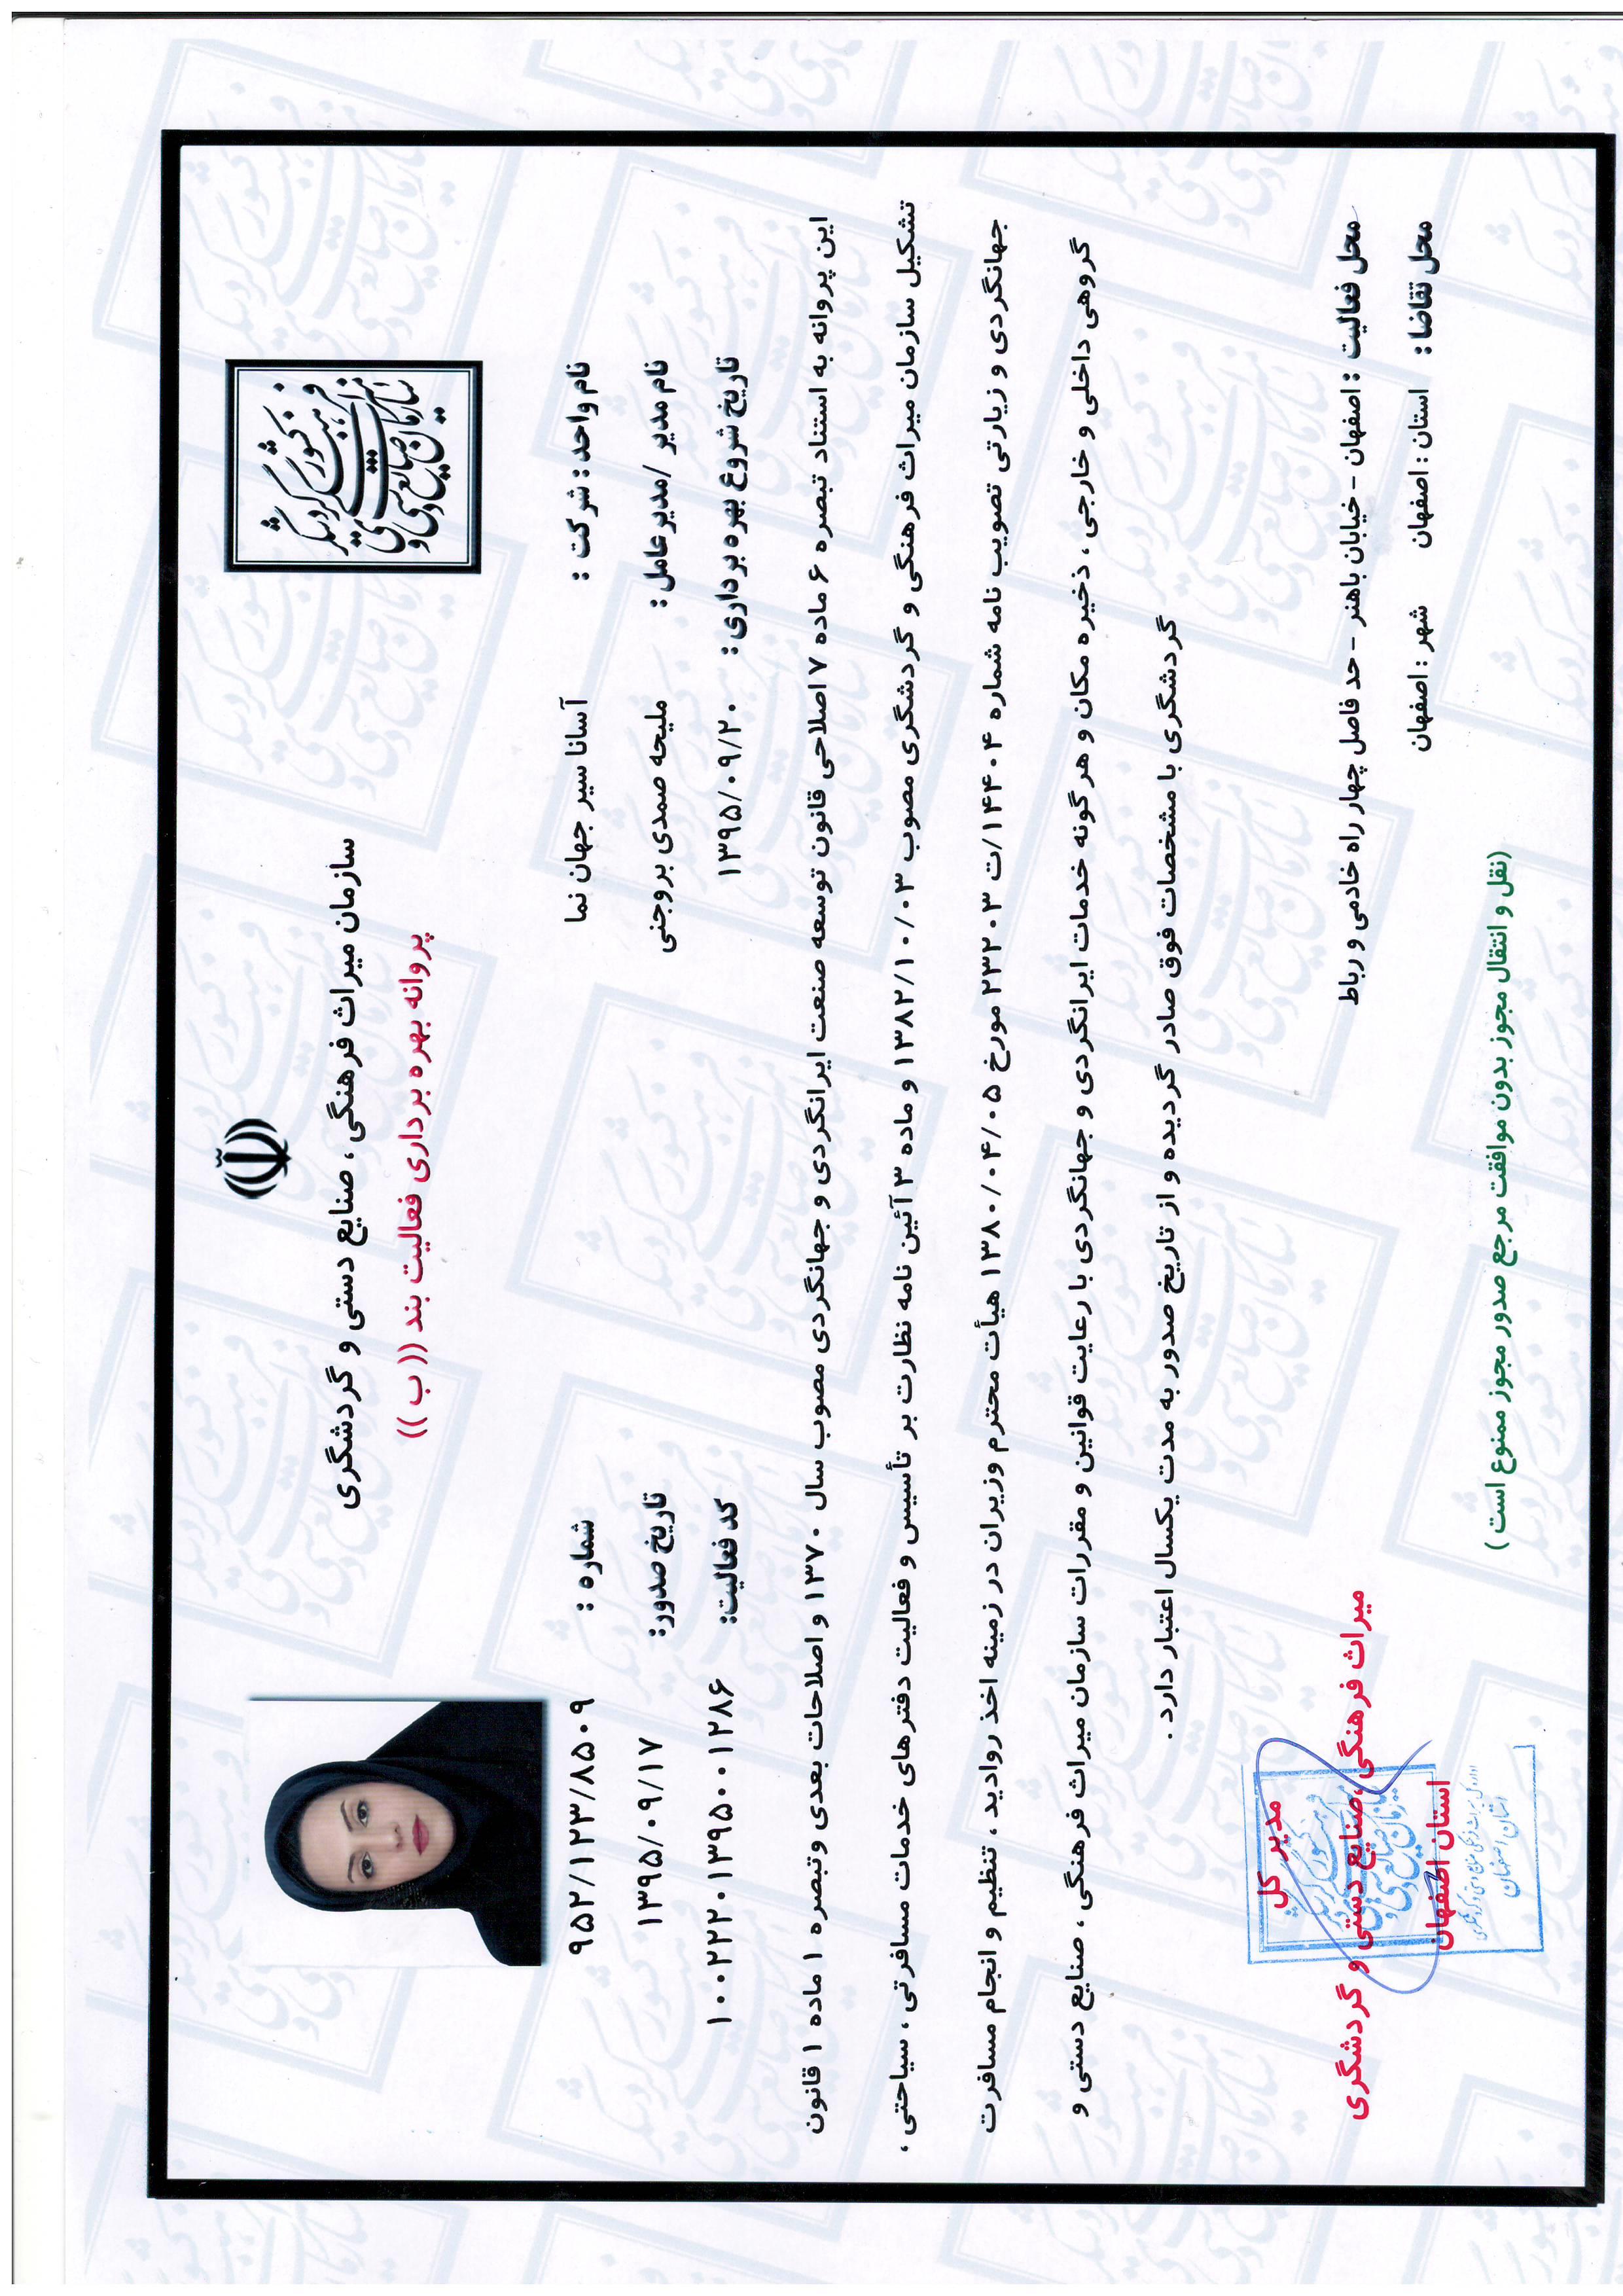 سازمان میراث فرهنگی ، صنایع دستی و گردشگری
پروانه بهره برداری فعالیت بند (( ب ))
نام واحد : شرکت : آسانا سیر جهان نما
شماره : ۹۵۲/۱۲۳/۸۵۰۹
نام مدیر /مدیرعامل : ملیحه صمدی بروجنی
تاریخ صدور: ۱۳۹۵/۰۹/۱۷
تاریخ شروع بهره برداری: ۱۳۹۵/۰۹/۲۰
کد فعالیت: ۱۰۰۲۲۲۰۱۳۹۵۰۰۱۲۸۶
این پروانه به استناد تبصره ۶ ماده ۷ اصلاحی قانون توسعه صنعت ایرانگردی و جهانگردی مصوب سال ۱۳۷۰ و اصلاحات بعدی وتبصره ۱ ماده ۱ قانون
تشکیل سازمان میراث فرهنگی و گردشگری مصوب ۱۳۸۲/۱۰/۰۳ و ماده ۳ آئین نامه نظارت بر تأسیس و فعالیت دفترهای خدمات مسافرتی ، سیاحتی ،
جهانگردی و زیارتی تصویب نامه شماره ۱۴۴۰۴/ت ۲۳۲۰۳ مورخ ۱۳۸۰/۰۴/۰۵ هیأت محترم وزیران در زمینه اخذ روادید ، تنظیم و انجام مسافرت
گروهی داخلی و خارجی ، ذخیره مکان و هر گونه خدمات ایرانگردی و جهانگردی با رعایت قوانین و مقررات سازمان میراث فرهنگی ، صنایع دستی و
گردشگری با مشخصات فوق صادر گردیده و از تاریخ صدور به مدت یکسال اعتبار دارد .
محل فعالیت : اصفهان - خیابان باهنر - حد فاصل چهار راه خادمی و رباط
محل تقاضا : استان : اصفهان شهر : اصفهان
مدیر کل
میراث فرهنگی ،صنایع دستی و گردشگری
استان اصفهان
(نقل و انتقال مجوز بدون موافقت مرجع صدور مجوز ممنوع است )